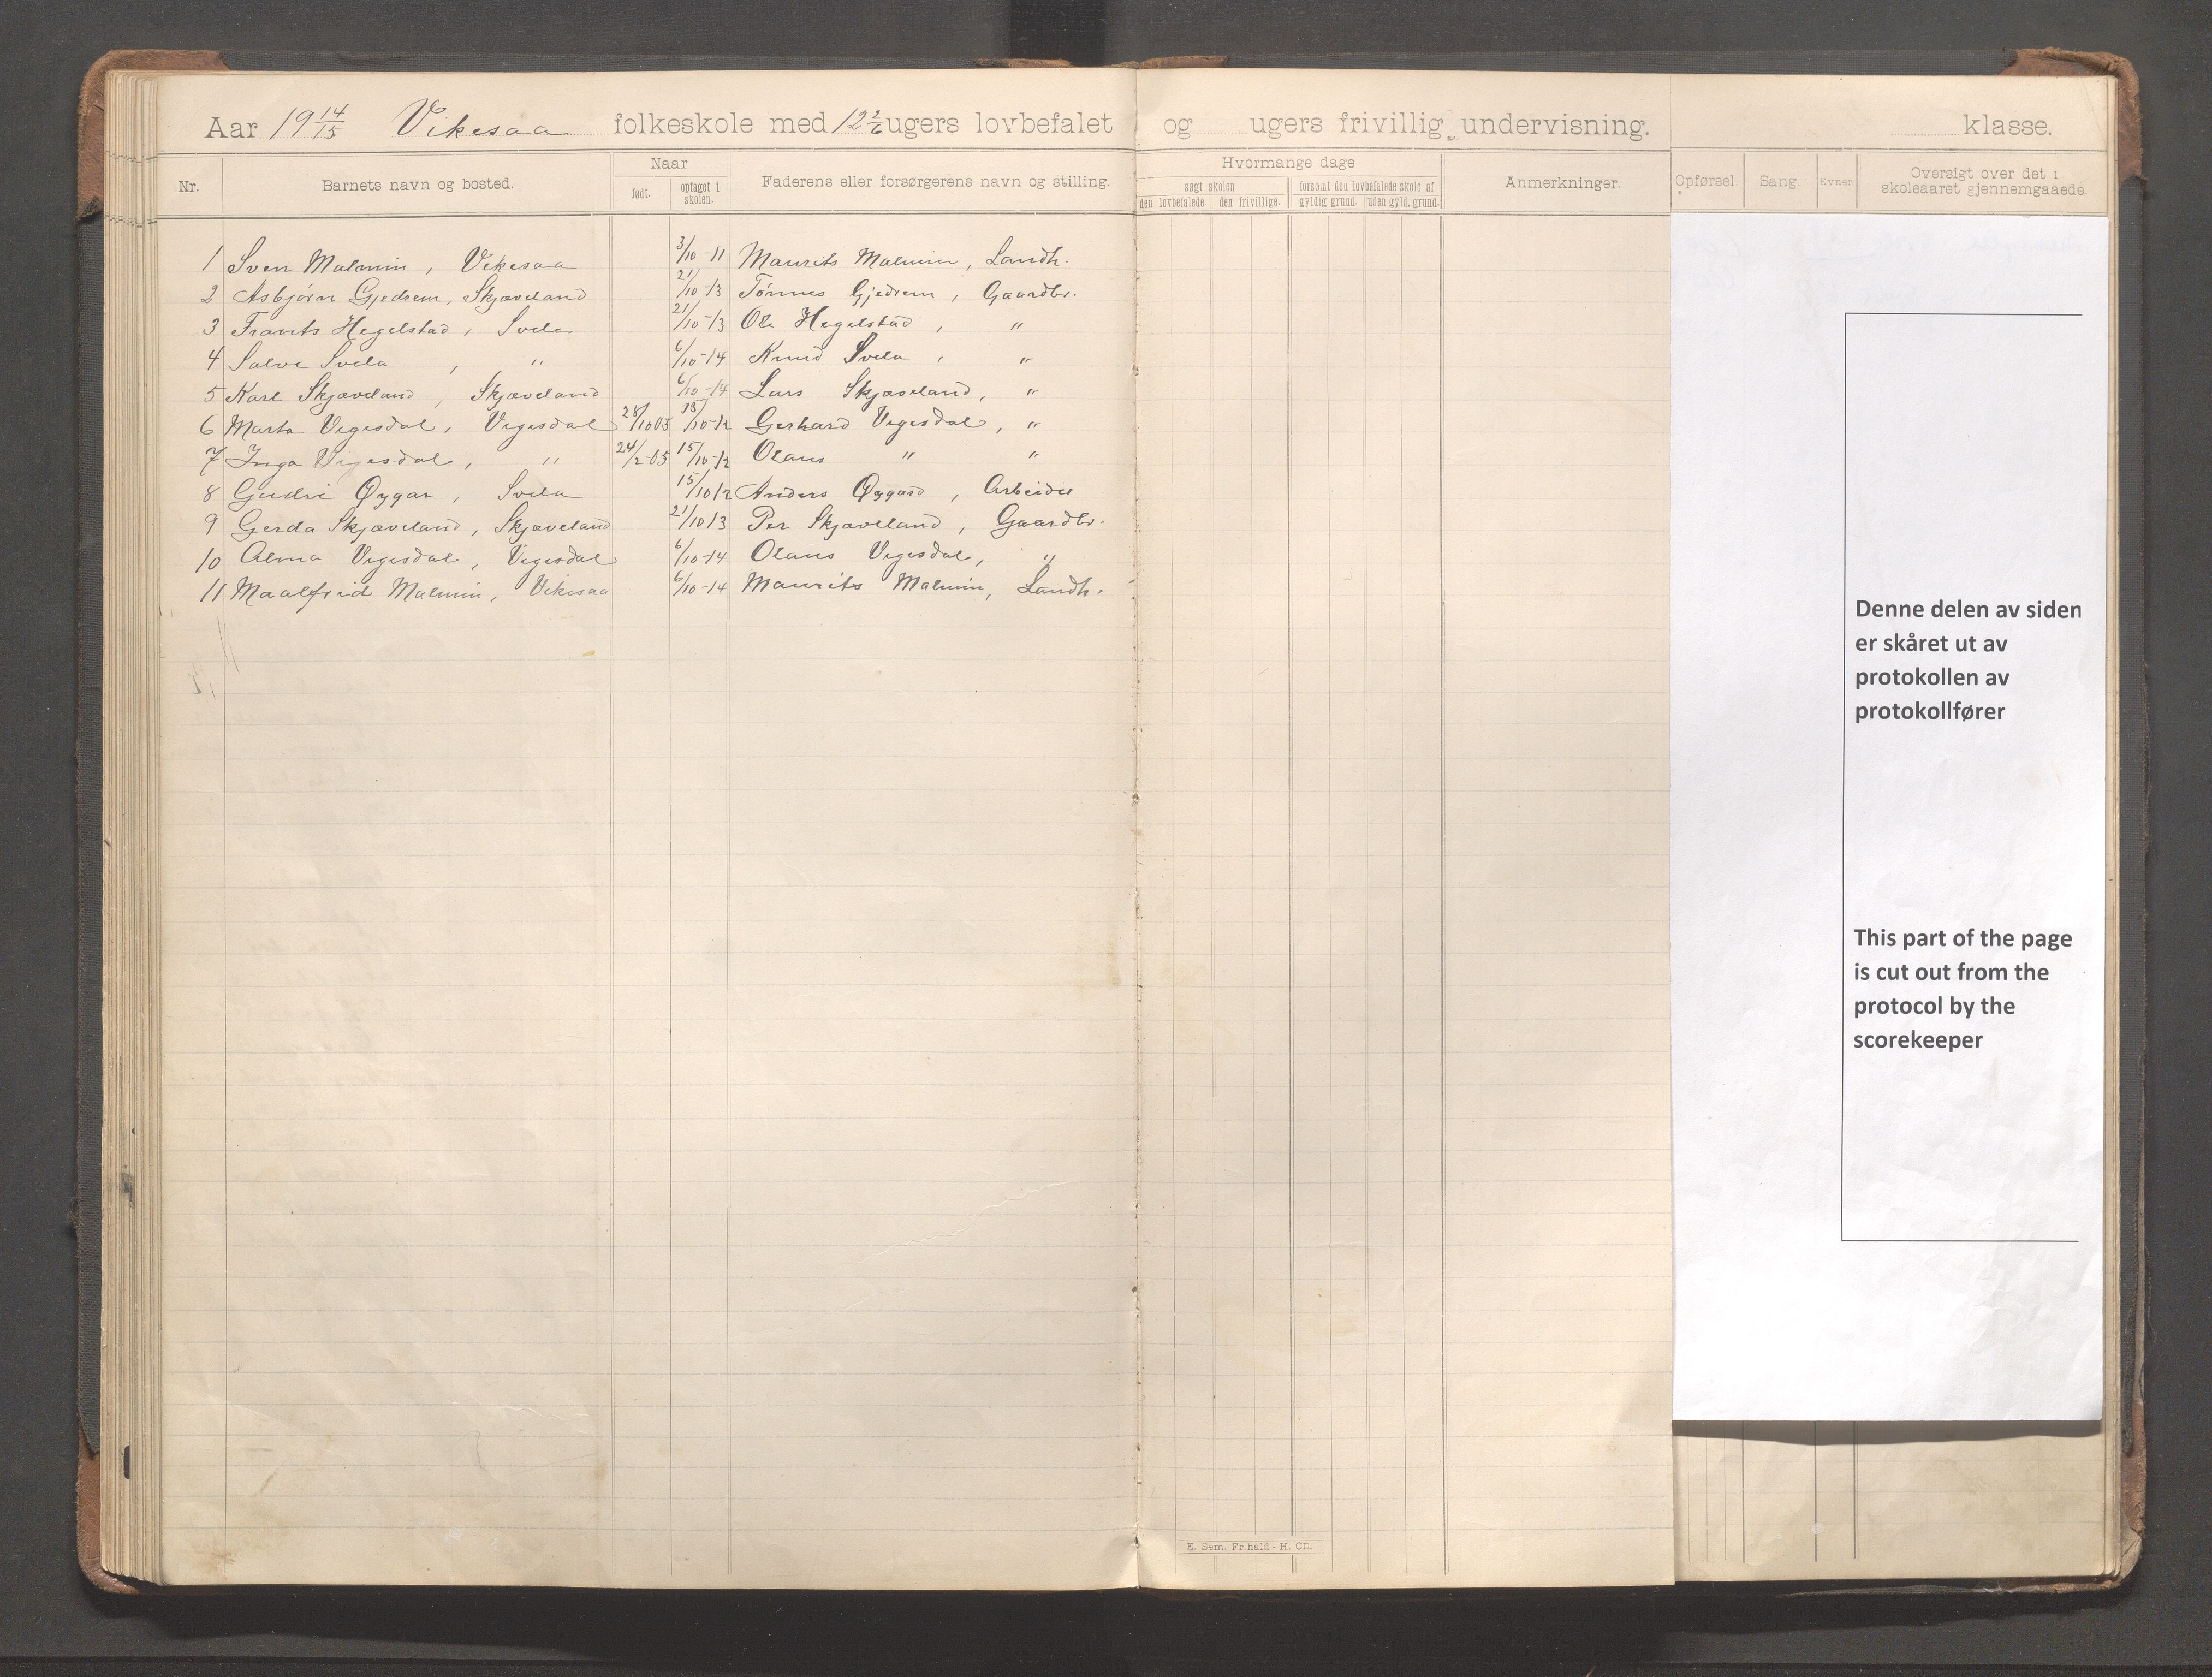 Aar 19 14/15 Vikesaa folkeskole med 12 2/6 ugers lovbefalet og ugers frivillig undervisning. klasse.
Nr. Barnets navn og bosted. Naar født. optaget i skolen. Faderens eller forsørgerens navn og stilling. Hvormange dage søgt skolen den lovbefalede den frivillige. forsømt den lovbefalede skole af gyldig grund. uden gyld. grund. Anmerkninger. Opførsel. Sang. Evner Oversigt over det i skoleaaret gjennemgaaede.
1 Sven Malmin, Vikesaa 3/10-11 Maurits Malmin, Landh.
2 Asbjørn Gjedrem, Skjæveland 21/10-13 Tønnes Gjedrem, Gaardbr.
3 Frants Hegelstad, Svela 21/10-13 Ole Hegelstad, "
4 Salve Svela, " 6/10-14 Knud Svela, "
5 Karl Skjæveland, Skjæveland 6/10-14 Lars Skjæveland, "
6 Marta Vegesdal, Vegesdal 28/10 05 /10-12 Gerhard Vegesdal, "
7 Inga Vegesdal, " 24/2-05 15/10-12 Olaus " "
8 Gudri Øygar, Svela 15/10 12 Anders Øygard, Arbeider
9 Gerda Skjæveland, Skjæveland 21/10 13 Per Skjæveland, Gaardbr.
10 Alma Vegesdal, Vegesdal 6/10-14 Olaus Vegesdal, "
11 Maalfrid Malmin, Vikesaa 6/10-14 Maurits Malmin, Landh.
Denne delen av siden
er skåret ut av
protokollen av
protokollfører
This part of the page
is cut out from the
protocol by the
scorekeeper
E. Sem, Fr.hald - H. CD.